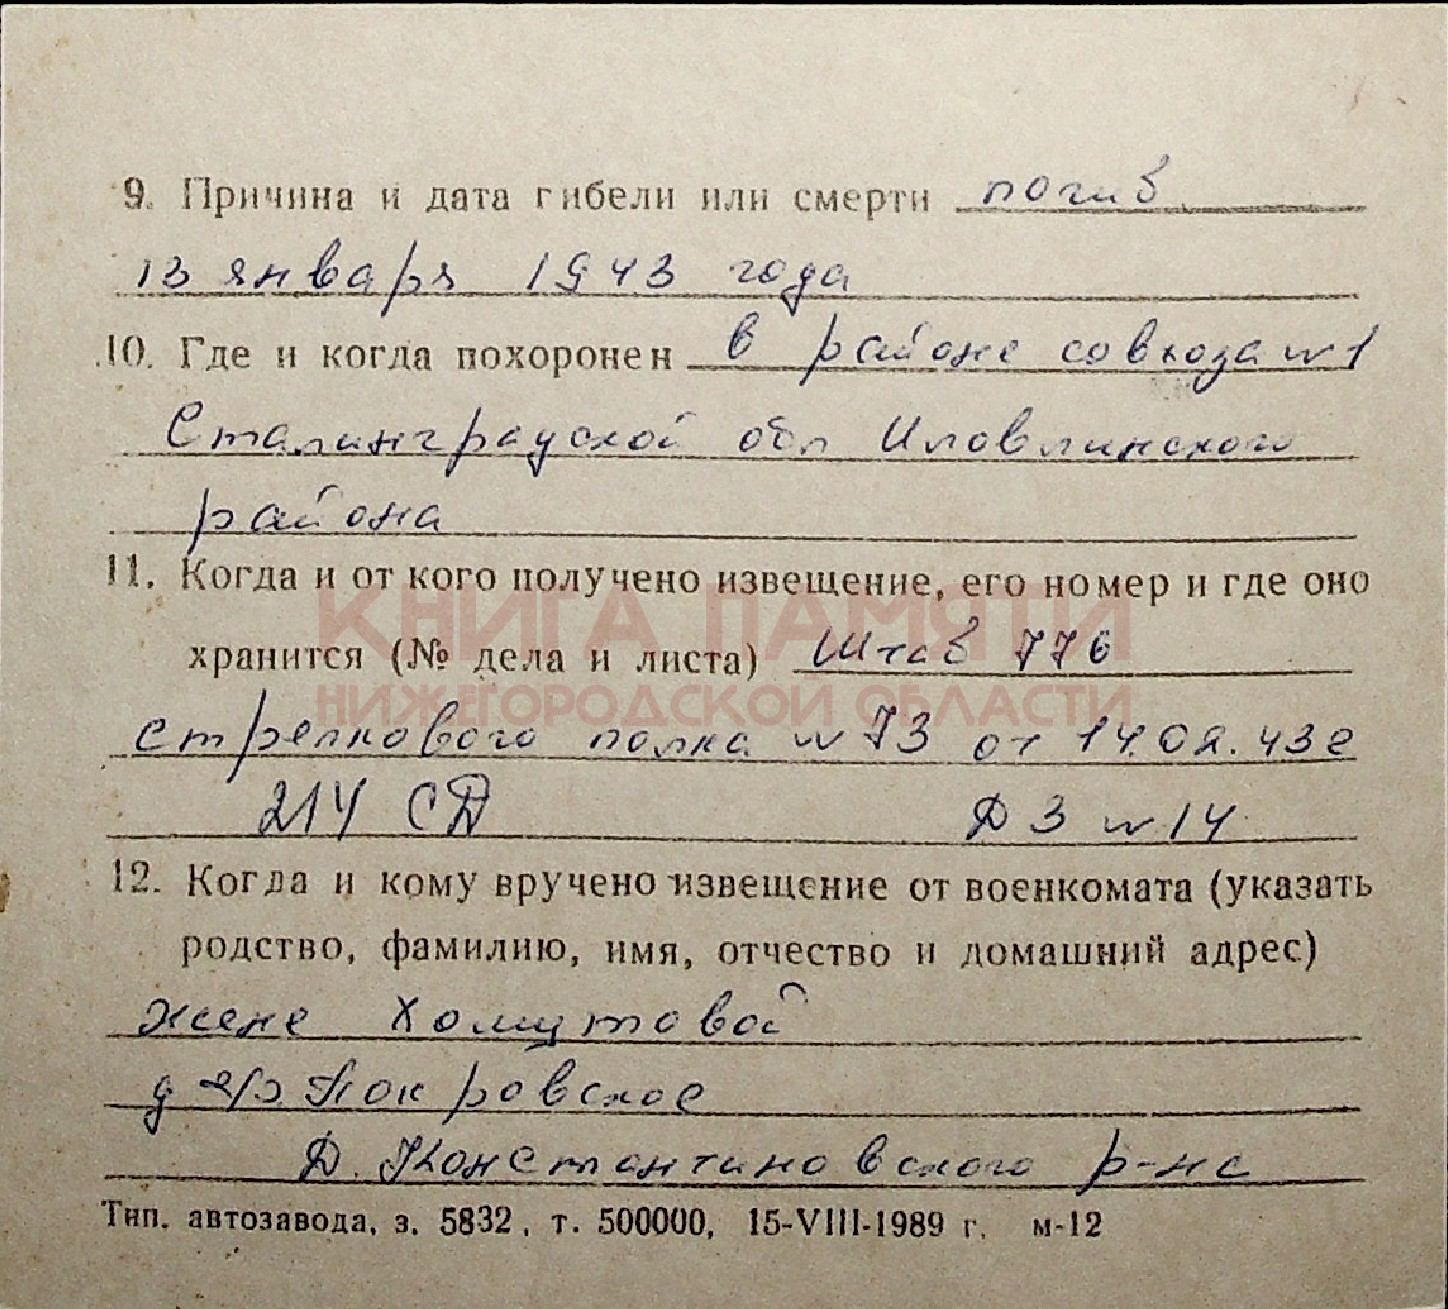 9. Причина и дата гибели или смерти погиб
13 января 1943 года
10. Где и когда похоронен в районе совхоза № 1
Сталинградской обл Иловлинского
района
11. Когда и от кого получено извещение, его номер и где оно
КНИГА ПАМЯТИ
хранится (№ дела и листа) Штаб 776
НИЖЕГОРОДСКОЙ ОБЛАСТИ
стрелкового полка № 73 от 14.02.43г
214 СД Д 3 № 14
12. Когда и кому вручено извещение от военкомата (указать
родство, фамилию, имя, отчество и домашний адрес)
жене Хомутовой
дер Покровское
Д. Константиновского р-на
Тип. автозавода, з. 5832, т. 500000, 15-VIII-1989 г. м-12